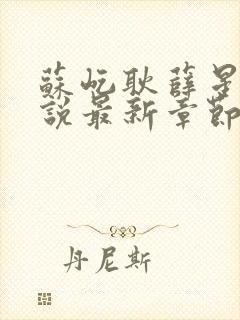 蘇屹耿薛星
說最新章節
丹尼斯